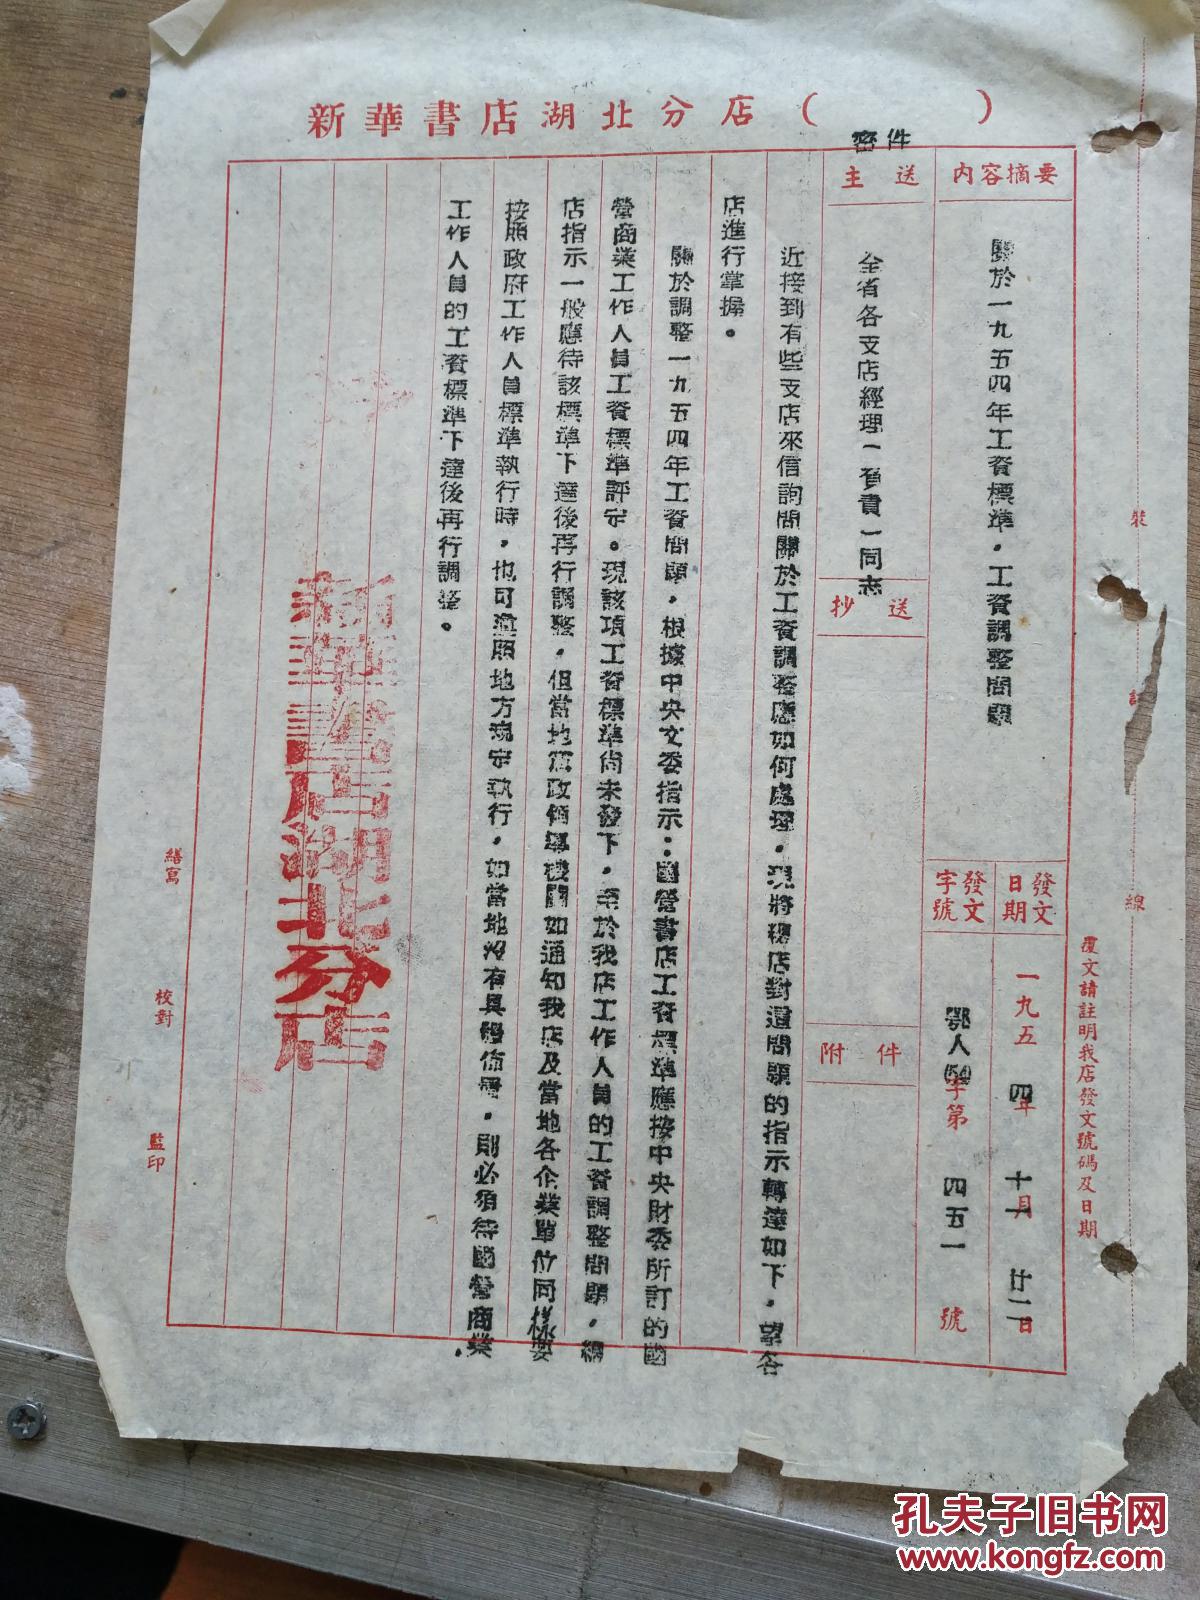 新華書店湖北分店（　　）
密件
內容摘要
關於一九五四年工資標準，工資調整問題
發文日期
一九五四年十一月廿二日
發文字號
鄂人(54)字第四五一號
主送
全省各支店經理（負責）同志
抄送
附件
近接到有些支店來信詢問關於工資調整應如何處理，現將總店對這問題的指示轉達如下，望各
店進行掌握。
關於調整一九五四年工資問題，根據中央文委指示：國營書店工資標準應按中央財委所訂的國
營商業工作人員工資標準評定。現該項工資標準尚未發下，至於我店工作人員的工資調整問題，總
店指示一般應待該標準下達後再行調整，但當地黨政領導機關如通知我店及當地各企業單位同樣要
按照政府工作人員標準執行時，也可遵照地方規定執行，如當地沒有具體佈置，則必須待國營商業
工作人員的工資標準下達後再行調整。
新華書店湖北分店
繕寫
校對
監印
覆文請註明我店發文號碼及日期
裝
訂
線
孔夫子旧书网
www.kongfz.com